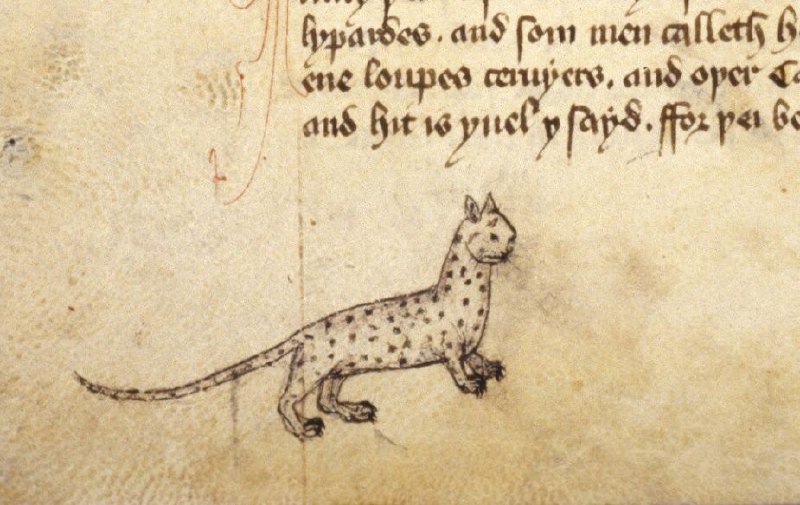 lypardes. and som men calleth h
ene loupes ceruyers. and oþer Ca
and hit is yuel y sayd. ffor þei be